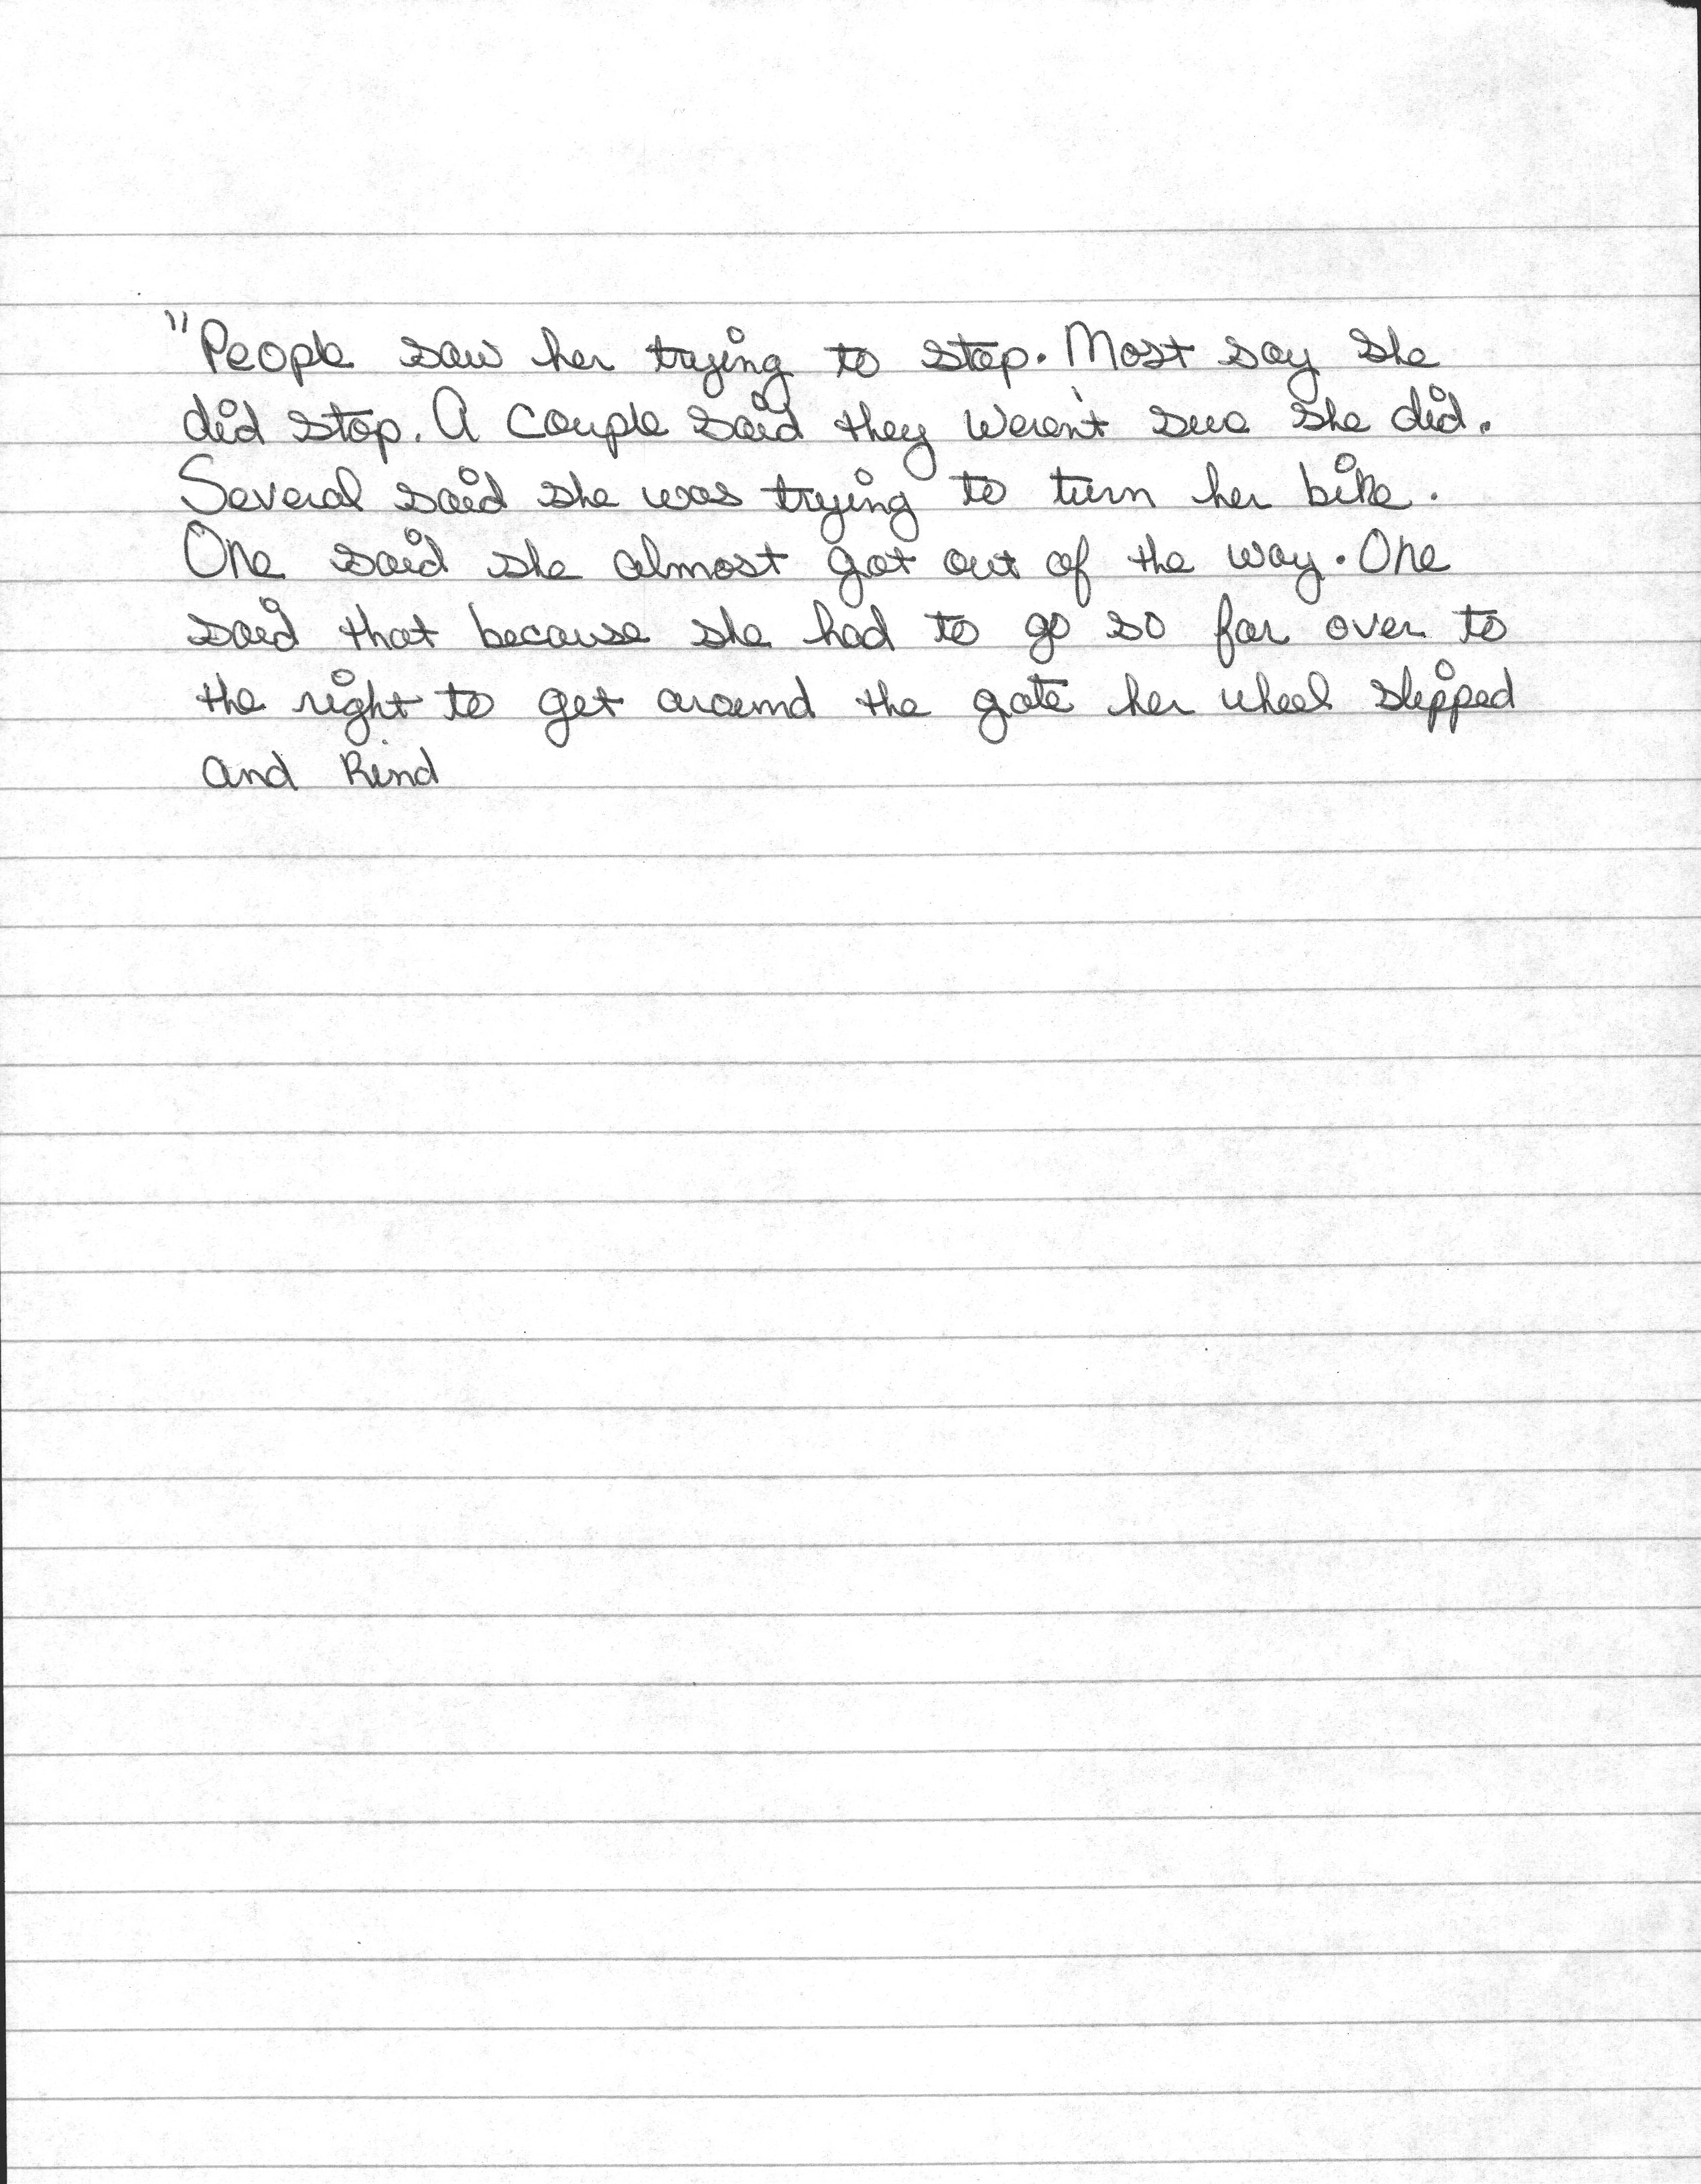 "People saw her trying to stop. Most say she
did stop. A couple said they weren't sure she did.
Several said she was trying to turn her bike.
One said she almost got out of the way. One
said that because she had to go so far over to
the right to get around the gate her wheel slipped
and kind